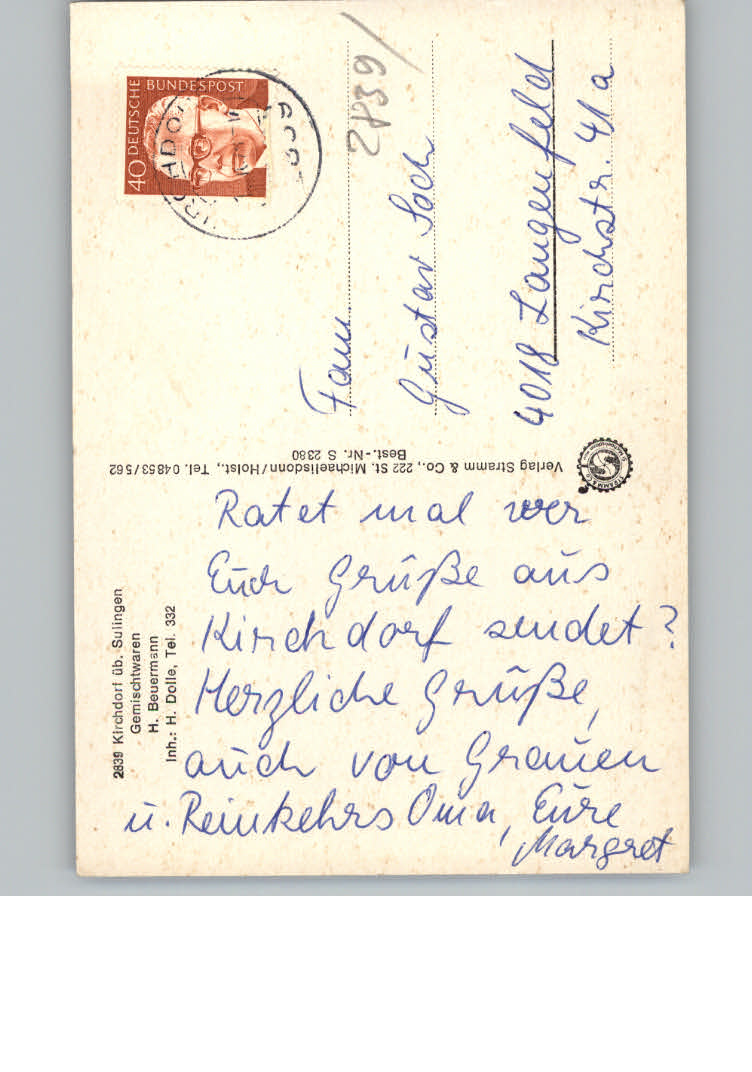 Ratet mal wer
Euch Grüße aus
Kirchdorf sendet?
Herzliche Grüße,
auch von
u. Oma, Eure
Margret
2839 Kirchdorf üb. Sulingen
Gemischtwaren
H. Beuermann
Inh.: H. Dolle, Tel. 332
Verlag Stramm & Co., 222 St. Michaelisdonn/Holst., Tel. 04853/562
Best.-Nr. S 2380
DEUTSCHE BUNDESPOST
40
2839/
Fam.
Gustav
4018 Langenfeld
Kirchstr. 41a